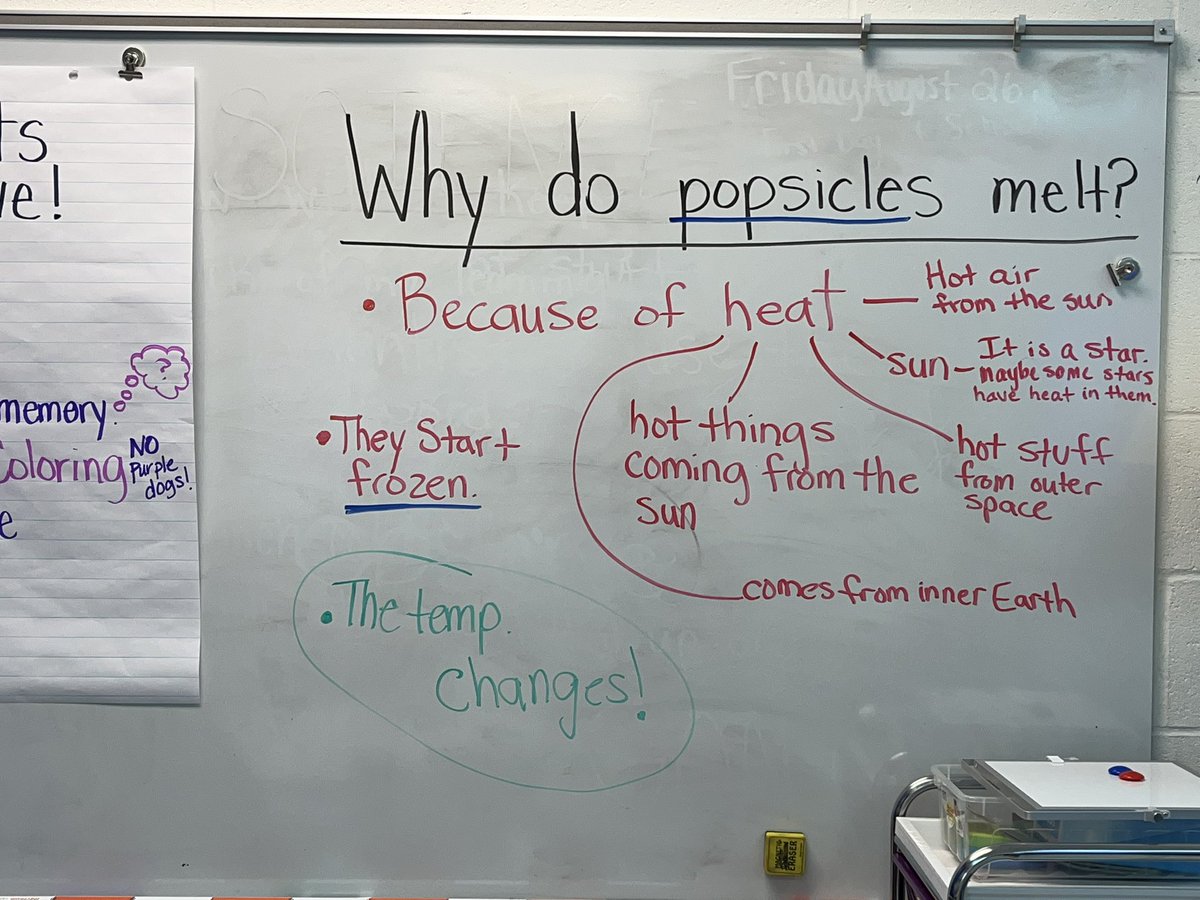 ts
ve!
memory.
?
Coloring
NO
Purple
dogs!
e
Friday August 26
Why do popsicles melt?
• Because of heat
Hot air
from the sun
sun – It is a star.
maybe some stars
have heat in them.
hot things
coming from the
sun
hot stuff
from outer
space
comes from inner Earth
• They Start
frozen.
• The temp.
changes!
ERASER